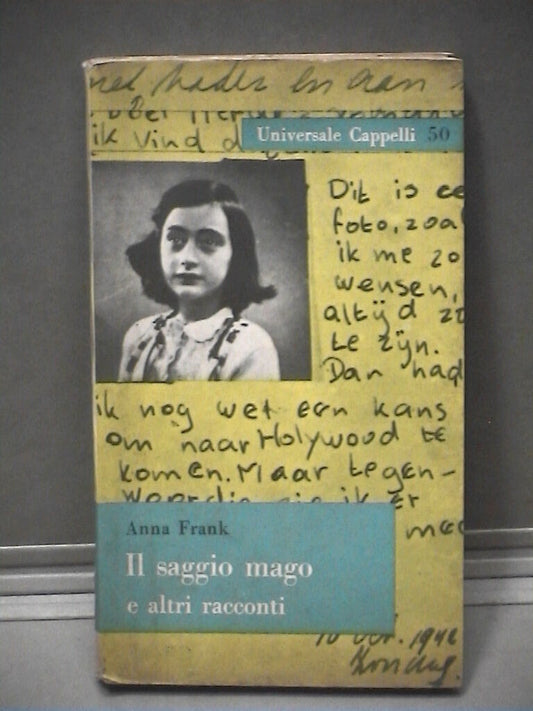 Universale Cappelli 50
ik vind d
Dit is ee
foto, zoal
ik me zo
wensen,
altijd zo
te zijn.
Dan had
ik nog wel een kans
om naar Holywood te
komen. Maar tegen-
woordig zie ik er
mee
Anna Frank
Il saggio mago
e altri racconti
10 Oct. 1942